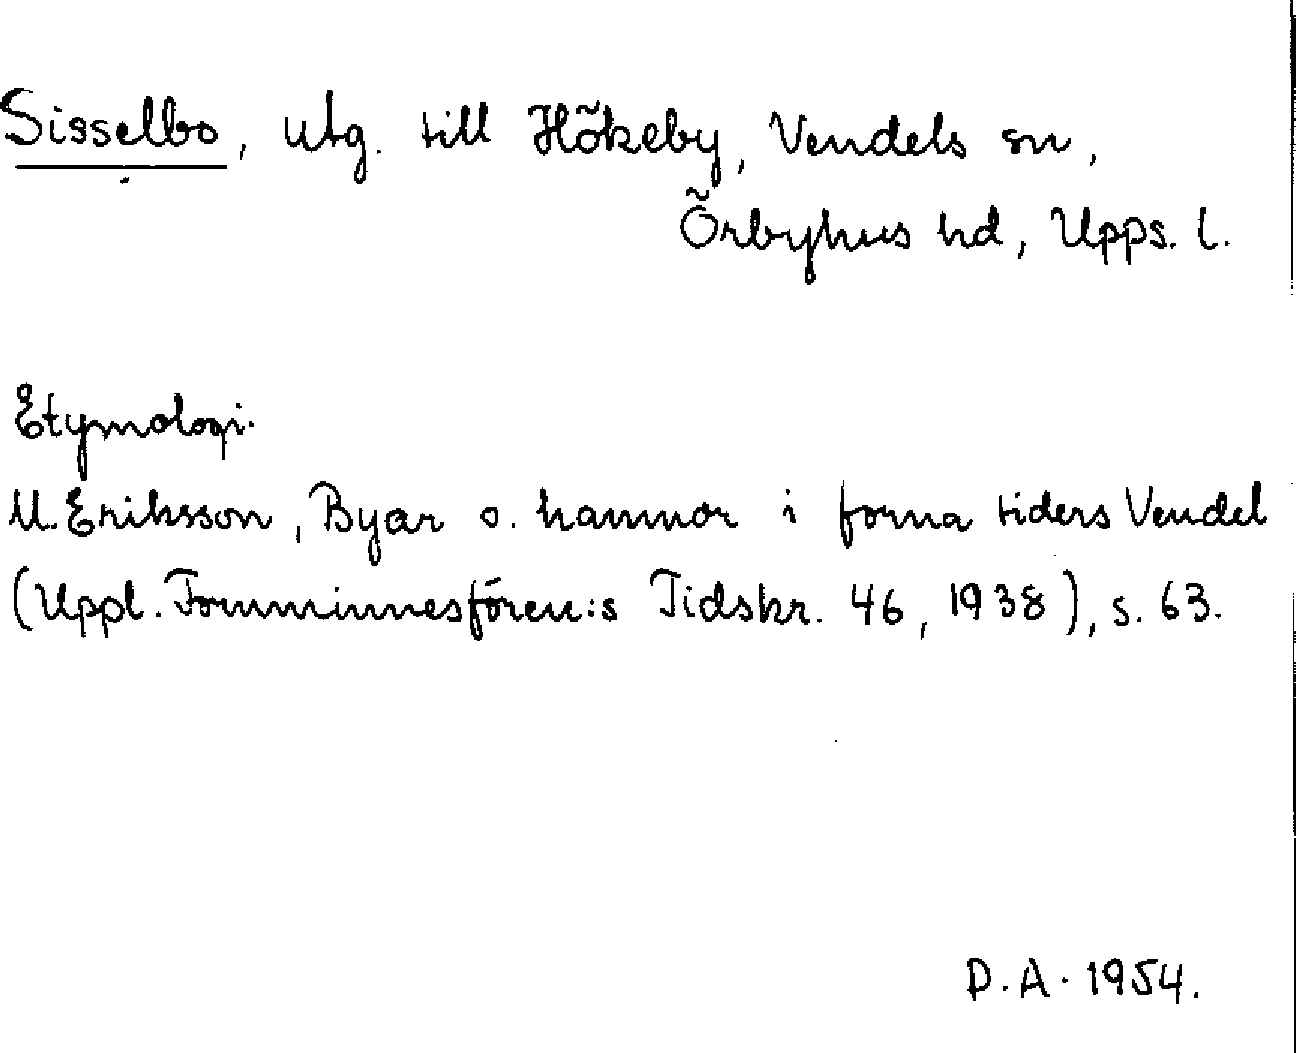 Sisselbo, utg. till Hökeby, Vendels sn,
Örbyhus hd, Upps. l.
Etymologi.
M. Eriksson, Byar o. hamnor i forna tiders Vendel
(Uppl. Fornminnesfören:s Tidskr. 46, 1938), s. 63.
D. A. 1954.